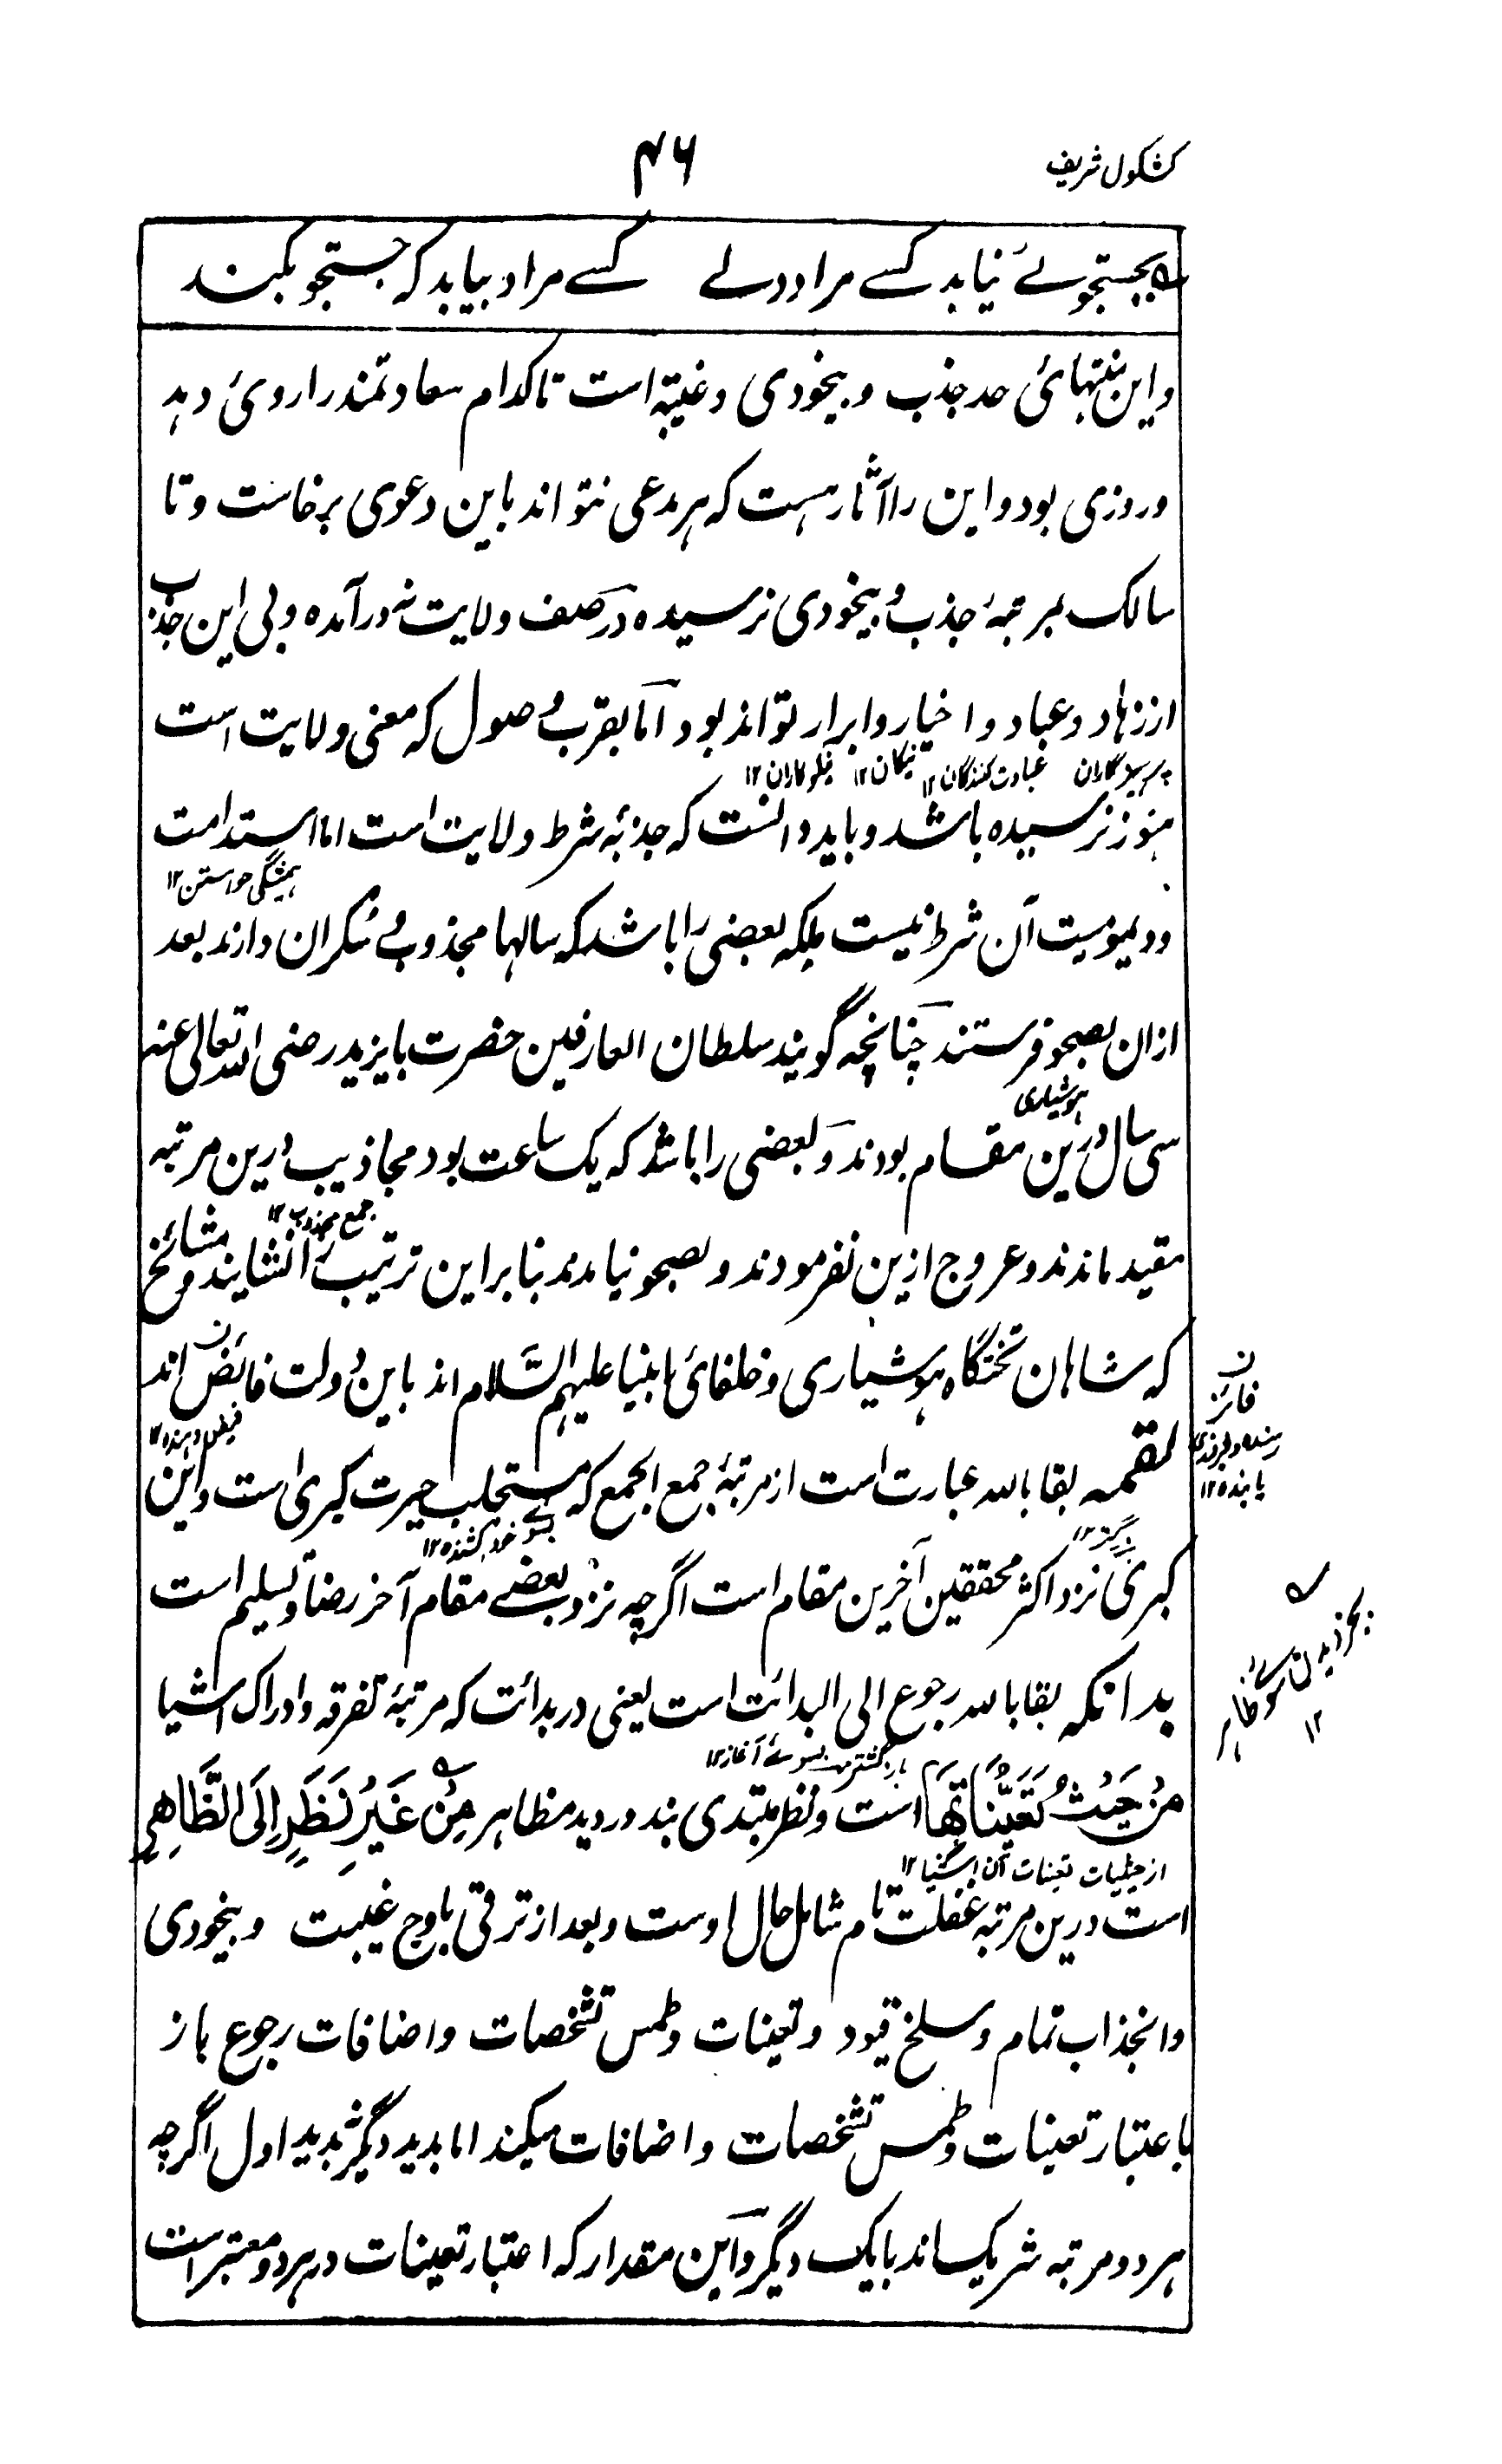 کشکول شریف
۴۶
بجستجوئے نیابد کسے مراد دلے کسے مراد بیابد کہ جستجو بکند
و این منتہائی حد جذب و بیخودی و غیبتہ است تا کدام سعادتمند را روئ دہد
و روزی بود و این را آثار ہست کہ ہر مدعی نتواند باین دعوی برخاست و تا
سالک بمرتبہٴ جذب و بیخودی نرسیدہ در صف ولایت نہ درآمدہ و بی این جذب
از زہاد و عباد و اخیار و ابرار تواند بود اما بقرب وصول کہ معنی ولایت است
پرہیزگاران عبادت کنندگان ۱۲ نیکان ۱۲ نیکوکاران ۱۲
ہنوز نرسیدہ باشد و باید دانست کہ جذبہٴ شرط ولایت است اما استدامت
ہمیشگی خواستن ۱۲
و دیمومیت آن شرط نیست بلکہ بعضی را باشد کہ سالہا مجذوب و سکران دارند بعد
ازان بصحو فرستند چنانچہ گویند سلطان العارفین حضرت بایزید رضی اللہ تعالی عنہ
ہوشیاری
سی سال درین مقام بودند و بعضی را باشد کہ یک ساعت بود مجاذیب درین مرتبہ
جمع مجذوب ۱۲
مقید ماندند و عروج ازین نفرمودند و بصحو نیامدند بنابراین ترتیب را نشایند و مشائخ
کہ شاہان تختگاہ ہوشیاری و خلفائی انبیا علیہم السلام اند باین دولت فائض اند
ن
فائز
فیض دہندہ ۱۲
یابندہ ۱۲
لقمہ بقا باللہ عبارت است از مرتبہٴ جمع الجمع کہ مستجلب حیرت کبری است و این
بسوئے خود کشندہ ۱۲
بزرگتر ۱۲
کبری نزد اکثر محققین آخرین مقام است اگرچہ نزد بعضے مقام آخر رضا و تسلیم است
بدانکہ بقا باللہ رجوع الی البدائت است یعنی در بدائت کہ مرتبہٴ تفرقہ و ادراک اشیا
بازگشتن بسوئے آغاز ۱۲
مِنْ حَیْثُ تَعَیُّنَاتِهَا است و نظر مبتدی بند در دید مظاہر مِنْ غَیْرِ نَظَرٍ اِلَی الظَّاهِرِ
از حیثیات تعینات آن اشیا ۱۲
است درین مرتبہ غفلت تام شامل حال اوست و بعد از ترقی باوج غیبت و بیخودی
و انجذاب تمام و سلخ قیود و تعینات و طمس تشخصات و اضافات رجوع باز
باعتبار تعینات و طمس تشخصات و اضافات میکند اما بدید دیگر نہ بدید اول اگرچہ
ہر دو مرتبہ شریک اند بایک دیگر و این مقدار کہ اعتبار تعینات در ہر دو معتبر است